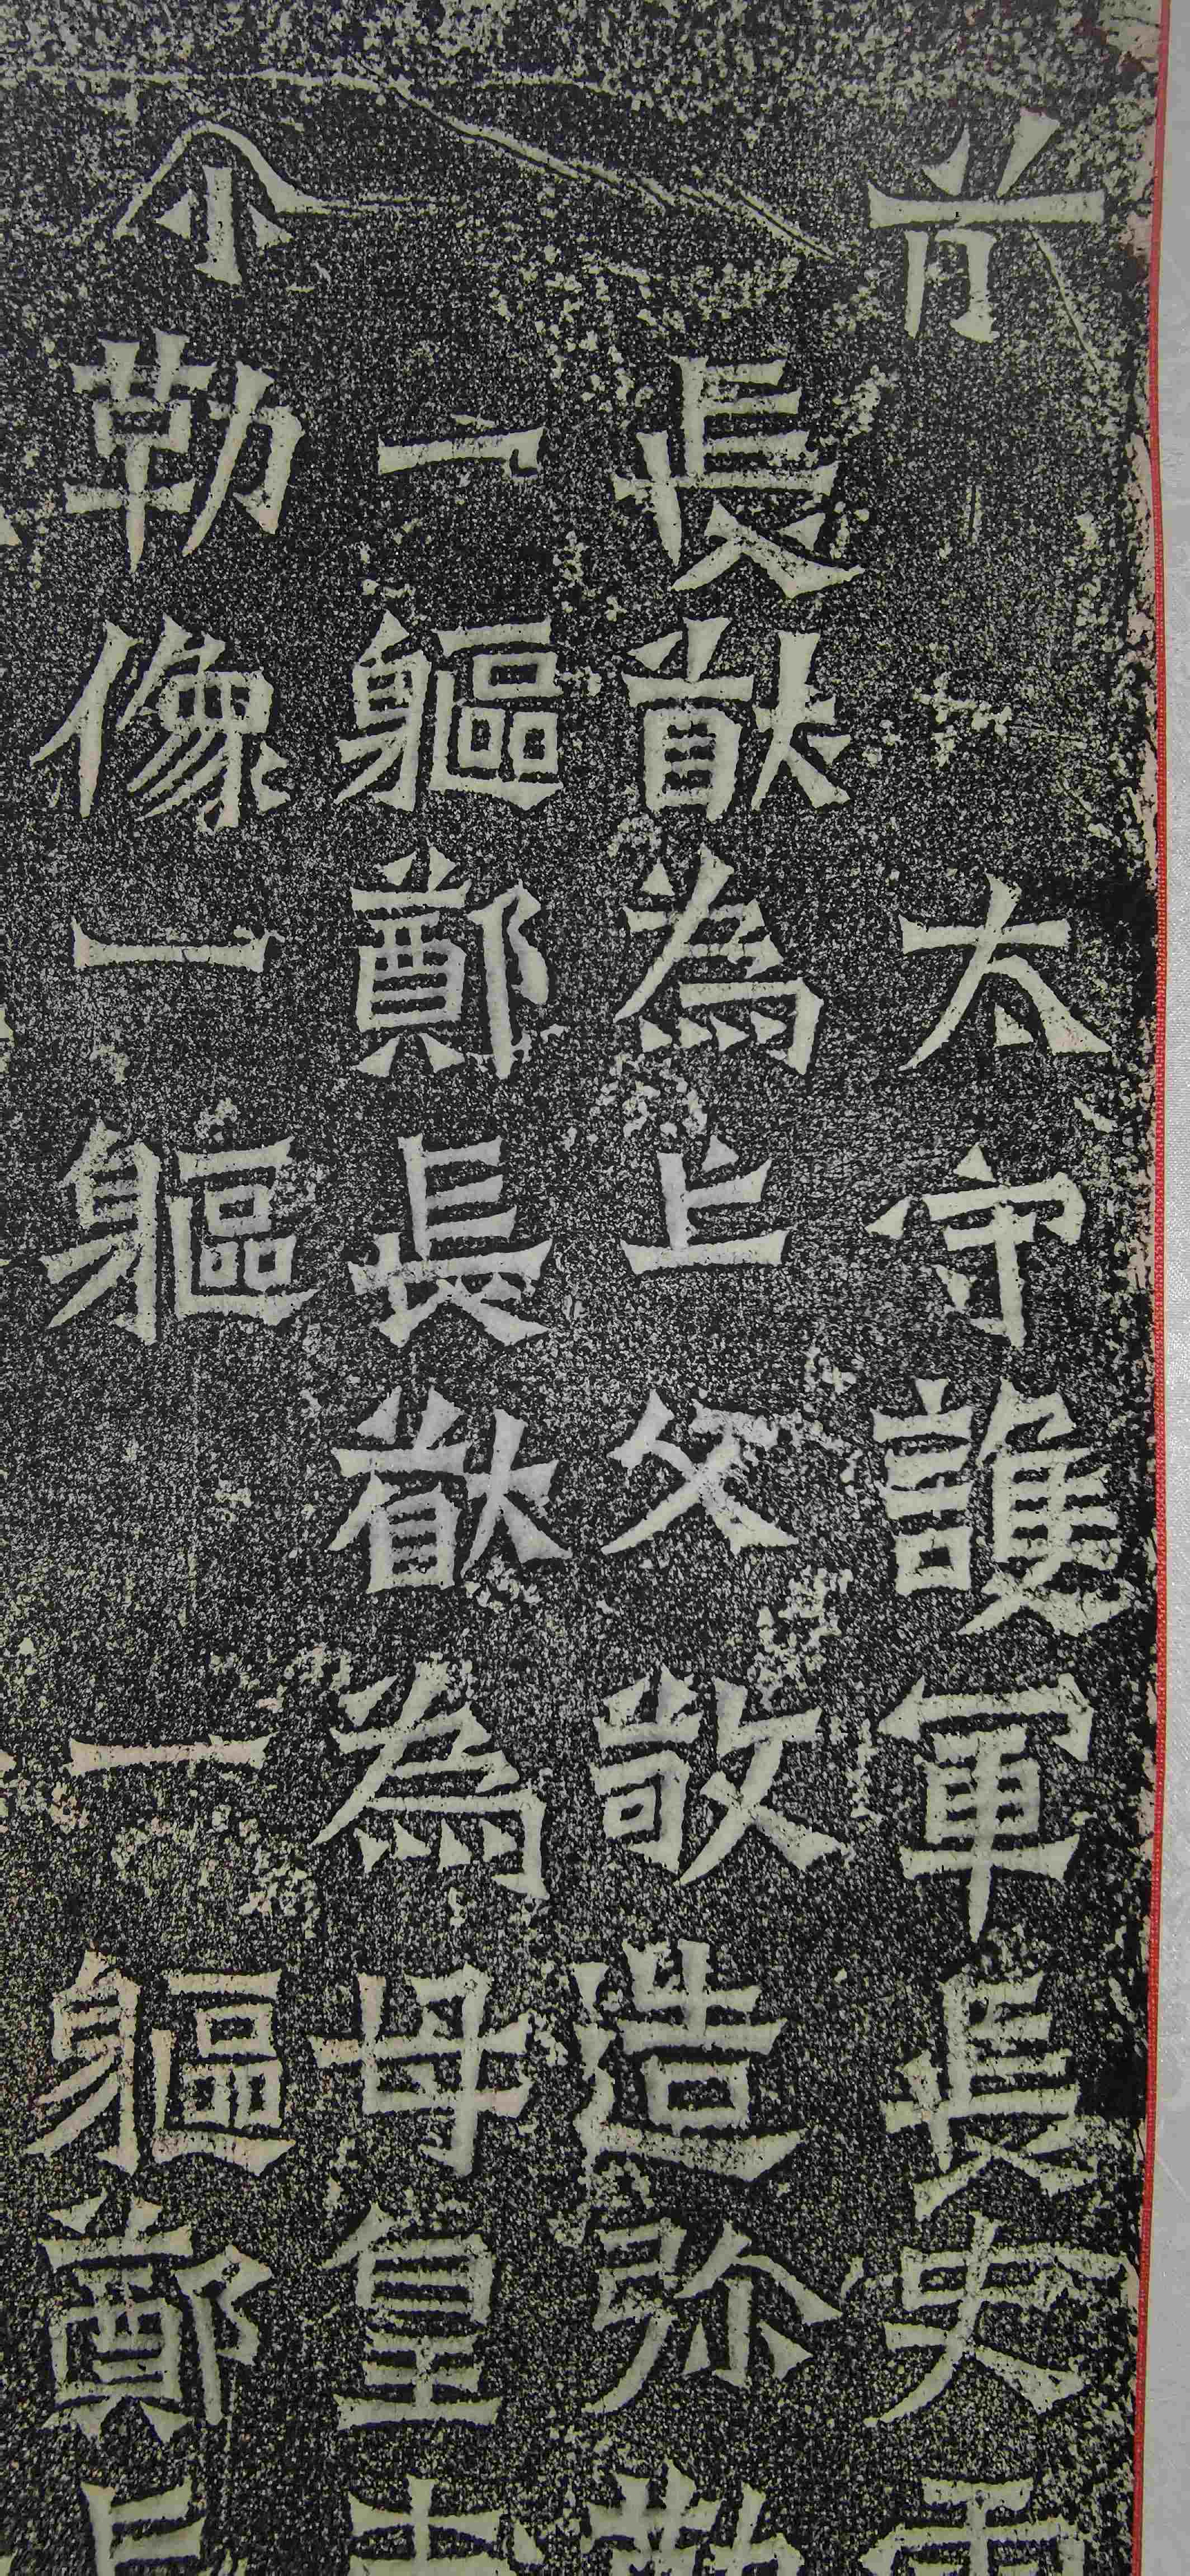 前太守護軍長史雲
長猷為亡父敬造弥勒
一軀鄭長猷為母皇甫
尒勒像一軀 一軀鄭長